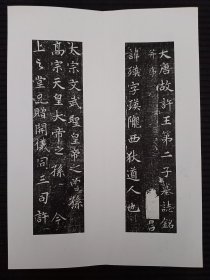 大唐故許王第二子墓誌銘
并序
諱瑛字瑛隴西狄道人也
太宗文武聖皇帝之孫
高宗天皇大帝之孫今
上之堂兄贈開儀同三司許